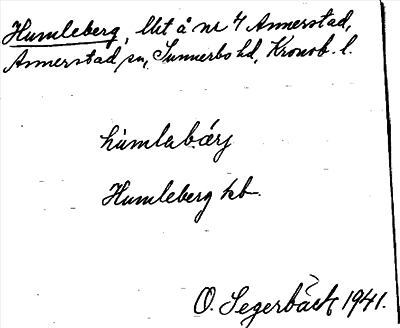 Humleberg, lht å nr 4 Annerstad,
Annerstad sn, Sunnerbo hd, Kronob. l.
hùmlabærj
Humleberg kb.
O. Segerbäck 1941.